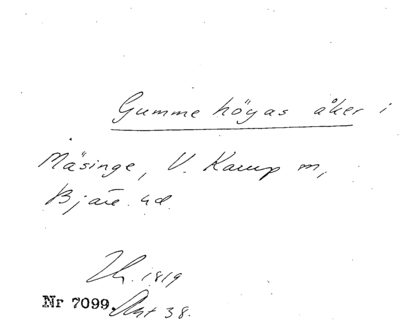 Gumme högas åker i
Mäsinge, V. Karup sn,
Bjäre hd.
1819
Nr 7099 Akt 38.